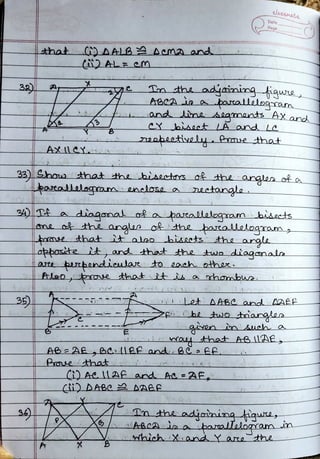 classmate
Date
Page
that (i) ΔALB ≅ ΔCMD and
(ii) AL = CM
32) In the adjoining figure,
ABCD is a parallelogram
and line segments AX and
CY bisect ∠A and ∠C
respectively. Prove that
AX || CY.
D X C
2
1 3
A Y B
33) Show that the bisectors of the angles of a
parallelogram enclose a rectangle.
34) If a diagonal of a parallelogram bisects
one of the angles of the parallelogram,
prove that it also bisects the angle
opposite it and that the two diagonals
are perpendicular to each other.
Also, prove that it is a rhombus.
35) Let ΔABC and ΔDEF
be two triangles
given in such a
way that AB || DE,
A D
C F
B E
AB = DE, BC || EF and BC = EF.
Prove that
(i) AC || DF and AC = DF,
(ii) ΔABC ≅ ΔDEF
36) In the adjoining figure,
ABCD is a parallelogram in
which X and Y are the
D Y C
P Q
A X B